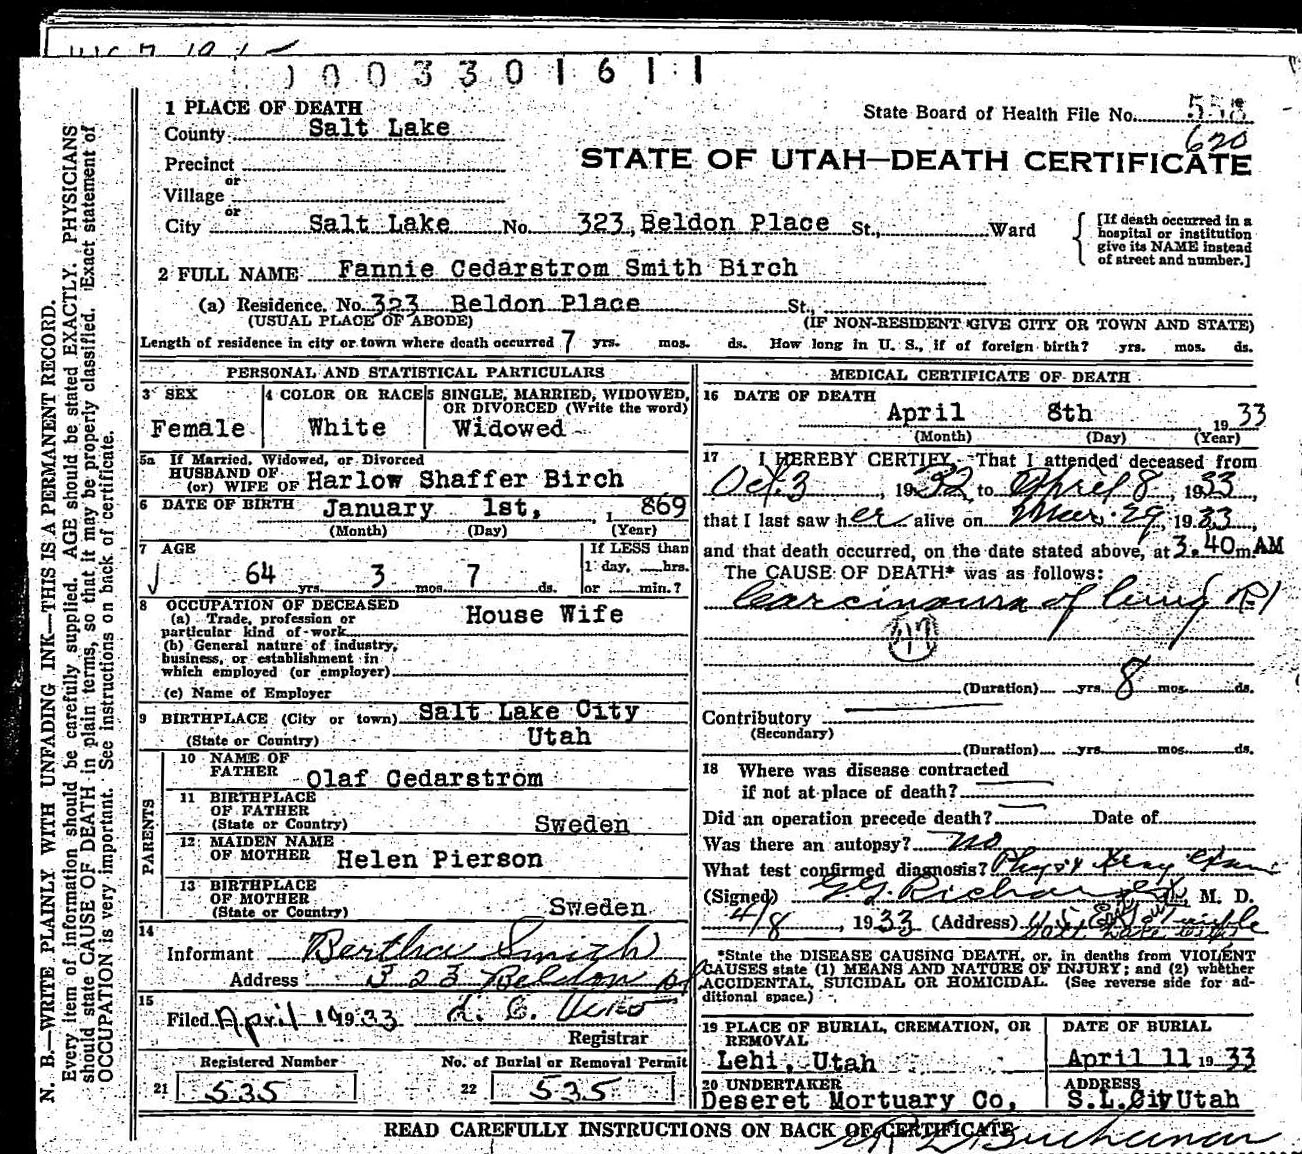 0003301611
1 PLACE OF DEATH
State Board of Health File No. 558
County Salt Lake
620
Precinct
STATE OF UTAH—DEATH CERTIFICATE
or
Village
or
City Salt Lake No. 323, Beldon Place St., Ward
[If death occurred in a
hospital or institution
give its NAME instead
of street and number.]
2 FULL NAME Fannie Cedarstrom Smith Birch
(a) Residence. No. 323 Beldon Place St.,
(USUAL PLACE OF ABODE) (IF NON-RESIDENT GIVE CITY OR TOWN AND STATE)
Length of residence in city or town where death occurred 7 yrs. mos. ds. How long in U. S., if of foreign birth? yrs. mos. ds.
PERSONAL AND STATISTICAL PARTICULARS
3 SEX
Female
4 COLOR OR RACE
White
5 SINGLE, MARRIED, WIDOWED,
OR DIVORCED (Write the word)
Widowed
5a If Married, Widowed, or Divorced
HUSBAND OF
(or) WIFE OF Harlow Shaffer Birch
6 DATE OF BIRTH January 1st, 1869
(Month) (Day) (Year)
7 AGE
64 yrs. 3 mos. 7 ds.
If LESS than
1 day, hrs.
or min.?
8 OCCUPATION OF DECEASED
(a) Trade, profession or
particular kind of work House Wife
(b) General nature of industry,
business, or establishment in
which employed (or employer)
(c) Name of Employer
9 BIRTHPLACE (City or town) Salt Lake City
(State or Country) Utah
PARENTS
10 NAME OF
FATHER Olaf Cedarstrom
11 BIRTHPLACE
OF FATHER
(State or Country) Sweden
12 MAIDEN NAME
OF MOTHER Helen Pierson
13 BIRTHPLACE
OF MOTHER
(State or Country) Sweden
14
Informant Bertha Smith
Address 323 Beldon pl
15
Filed April 1933
Registrar
Registered Number
21 535
No. of Burial or Removal Permit
22 535
MEDICAL CERTIFICATE OF DEATH
16 DATE OF DEATH
April 8th, 1933
(Month) (Day) (Year)
17 I HEREBY CERTIFY, That I attended deceased from
Oct. 3, 1932, to April 8, 1933,
that I last saw her alive on Mar. 29, 1933,
and that death occurred, on the date stated above, at 3.40 m. AM
The CAUSE OF DEATH* was as follows:
Carcinoma of lung (R)
47
(Duration) yrs. 8 mos. ds.
Contributory
(Secondary)
(Duration) yrs. mos. ds.
18 Where was disease contracted
if not at place of death?
Did an operation precede death? Date of
Was there an autopsy? no
What test confirmed diagnosis? Phys. & Xray Exam
(Signed) G.G. Richards, M. D.
4/8, 1933 (Address)
*State the DISEASE CAUSING DEATH, or, in deaths from VIOLENT
CAUSES state (1) MEANS AND NATURE OF INJURY; and (2) whether
ACCIDENTAL, SUICIDAL OR HOMICIDAL. (See reverse side for ad-
ditional space.)
19 PLACE OF BURIAL, CREMATION, OR
REMOVAL
Lehi, Utah
DATE OF BURIAL
April 11 1933
20 UNDERTAKER
Deseret Mortuary Co,
ADDRESS
S.L.City Utah
READ CAREFULLY INSTRUCTIONS ON BACK OF CERTIFICATE
N. B.—WRITE PLAINLY WITH UNFADING INK—THIS IS A PERMANENT RECORD.
Every item of information should be carefully supplied. AGE should be stated EXACTLY. PHYSICIANS
should state CAUSE OF DEATH in plain terms, so that it may be properly classified. Exact statement of
OCCUPATION is very important. See instructions on back of certificate.